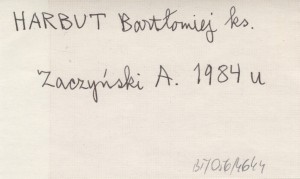 HARBUT Bartłomiej ks.
Zaczyński A. 1984 u